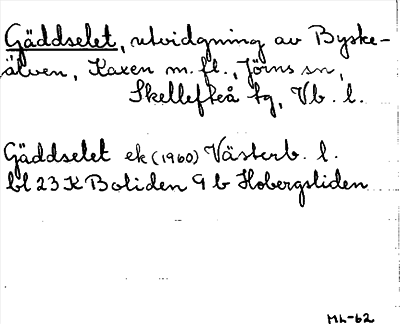 Gäddselet, utvidgning av Byske-
älven, Kaxen m. fl., Jörns sn,
Skellefteå tg, Vb. l.
Gäddselet ek (1960) Västerb. l.
bl 23 K Boliden 9 b Hobergsliden
ML-62